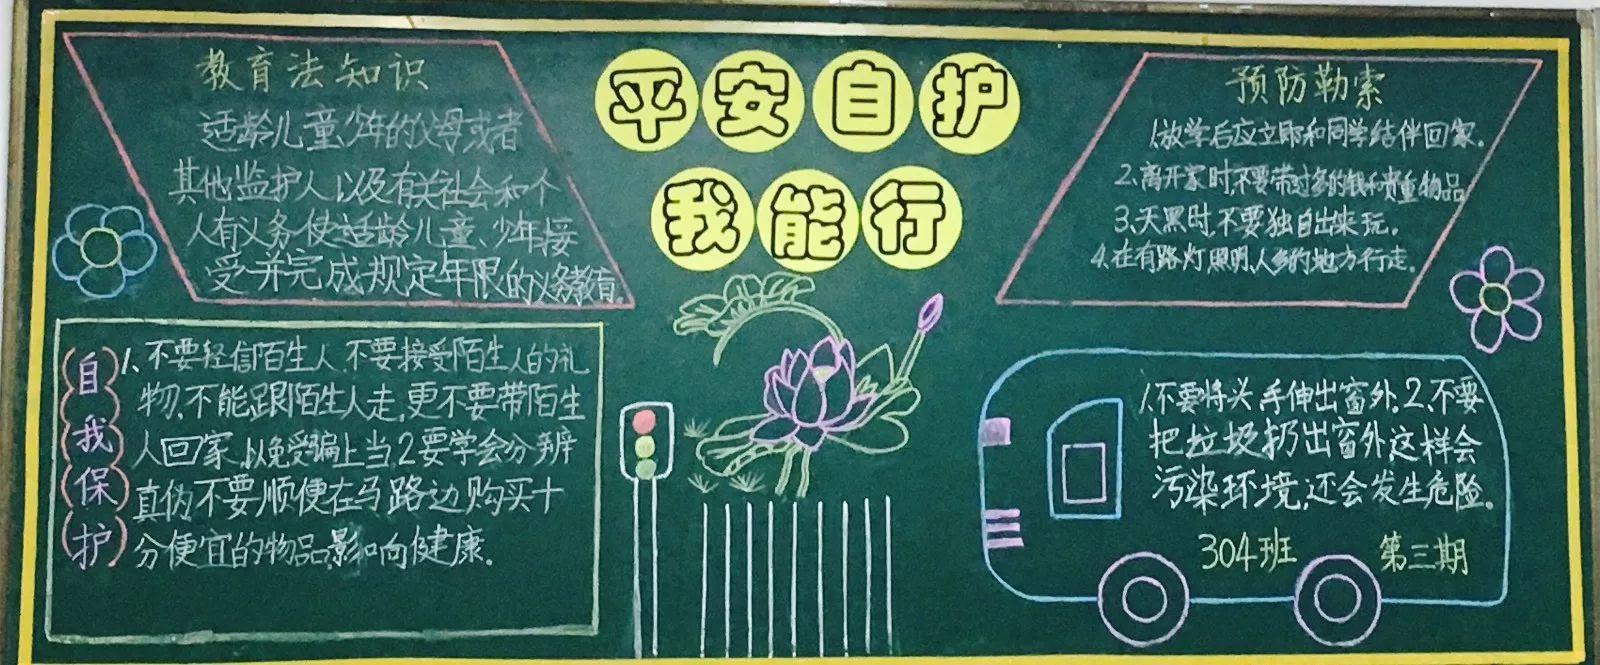 教育法知识
适龄儿童少年的父母或者
其他监护人以及有关社会和个
人有义务使适龄儿童、少年接
受并完成规定年限的义务教育。
平安自护
我能行
预防勒索
1.放学后应立即和同学结伴回家。
2.离开家时,不要带过多的钱和贵重物品
3.天黑时,不要独自出来玩。
4.在有路灯照明,人多的地方行走。
自我保护
1、不要轻信陌生人、不要接受陌生人的礼
物,不能跟陌生人走,更不要带陌生
人回家,以免受骗上当,2要学会分辨
真伪不要顺便在马路边购买十
分便宜的物品,影响健康。
1.不要将头、手伸出窗外。2、不要
把垃圾扔出窗外这样会
污染环境,还会发生危险。
304班 第三期